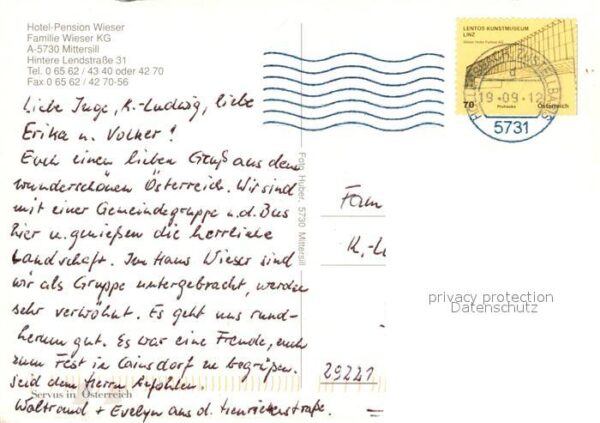 Hotel-Pension Wieser
Familie Wieser KG
A-5730 Mittersill
Hintere Lendstraße 31
Tel. 0 65 62 / 43 40 oder 42 70
Fax 0 65 62 / 42 70-56
Liebe Inge, K.-Ludwig, liebe
Erika u. Volker!
Euch einen lieben Gruß aus dem
wunderschönen Österreich. Wir sind
mit einer Gemeindegruppe u. d. Bus
hier u. genießen die herrliche
Landschaft. Im Haus Wieser sind
wir als Gruppe untergebracht, werden
sehr verwöhnt. Es geht uns rund-
herum gut. Es war eine Freude, euch
zum Fest in Cainsdorf zu begrüßen.
Seid dem Herrn befohlen.
Servus in Österreich
Waltraud + Evelyn aus d. Heinrichstraße.
Foto Huber, 5730 Mittersill
LENTOS KUNSTMUSEUM
LINZ
70
Österreich
19.-09.12
5731
Fam
K.-L
29221
privacy protection
Datenschutz